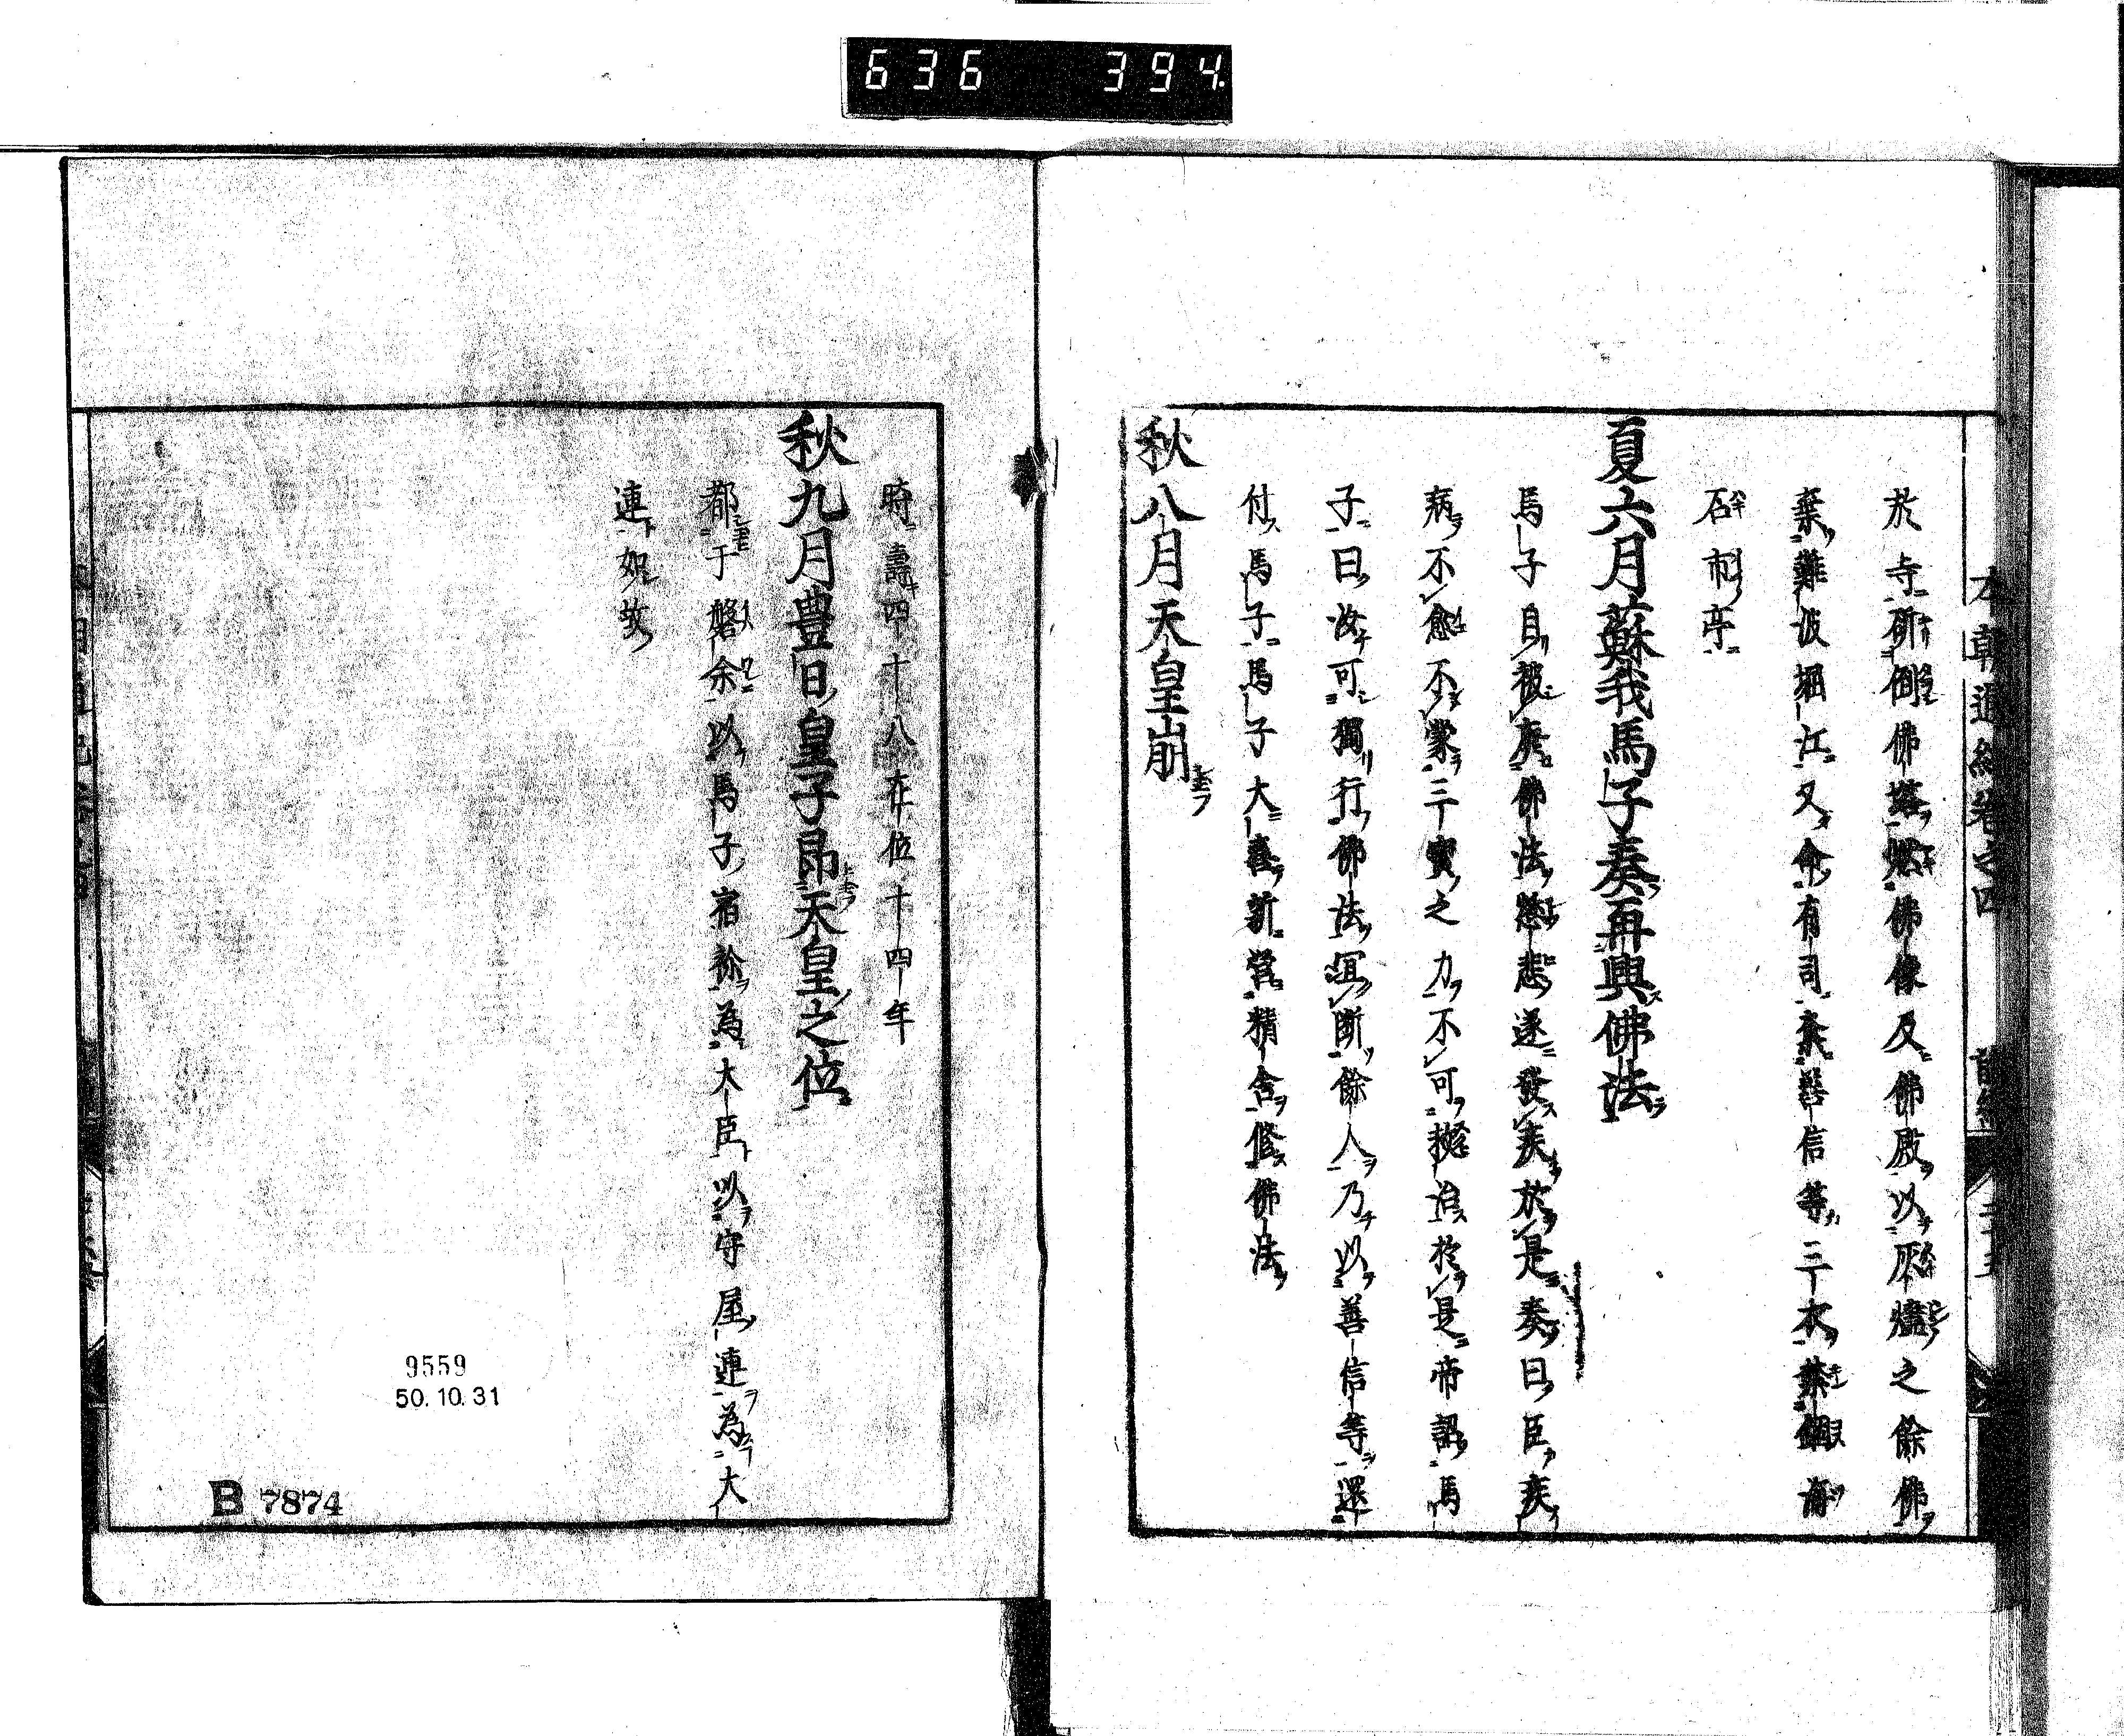 636 394
本朝通紀卷之四 前編
於寺斫倒佛塔燃佛像及佛殿以灰燼之餘佛
棄難波堀江又命有司奪善信等三衣禁錮海
石市亭
夏六月蘇我馬子奏再興佛法
馬子自報廃佛法愁悲遂發疾於是奏曰臣疾
病不愈不蒙三寶之力不可救治於是帝詔馬
子曰汝可獨行佛法冝断餘人乃以善信等還
付馬子馬子大喜新營精舍修佛法
秋八月天皇崩
時壽四十八在位十四年
秋九月豊日皇子昂天皇之位
都于磐余以馬子宿祢為大臣以守屋連為大
連如故
9559
50.10.31
B 7874